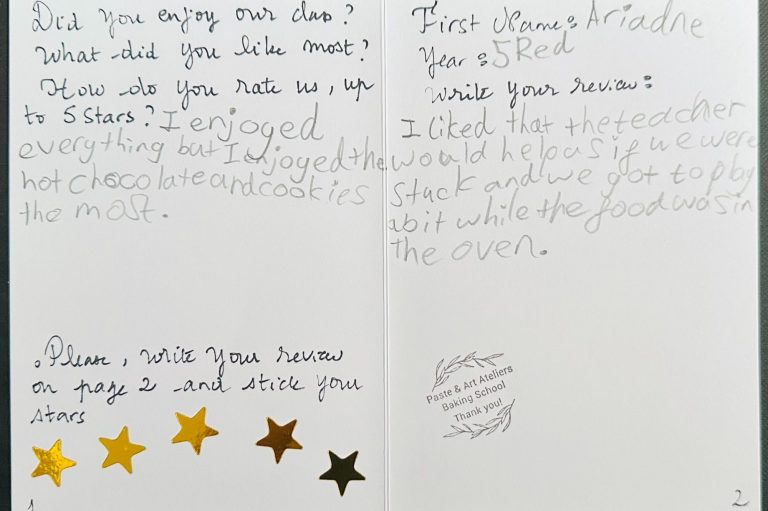 Did you enjoy our class?
What did you like most?
How do you rate us, up
to 5 stars? I enjoged
everything but I enjoged the
hot chocolate and cookies
the most.
. Please, write your review
on page 2 and stick your
stars
1
First Name: Ariadne
Year: 5Red
Write your review:
I liked that the teacher
would help us if we were
stuck and we got to play
abit while the food was in
the oven.
Paste & Art Ateliers
Baking School
Thank you!
2